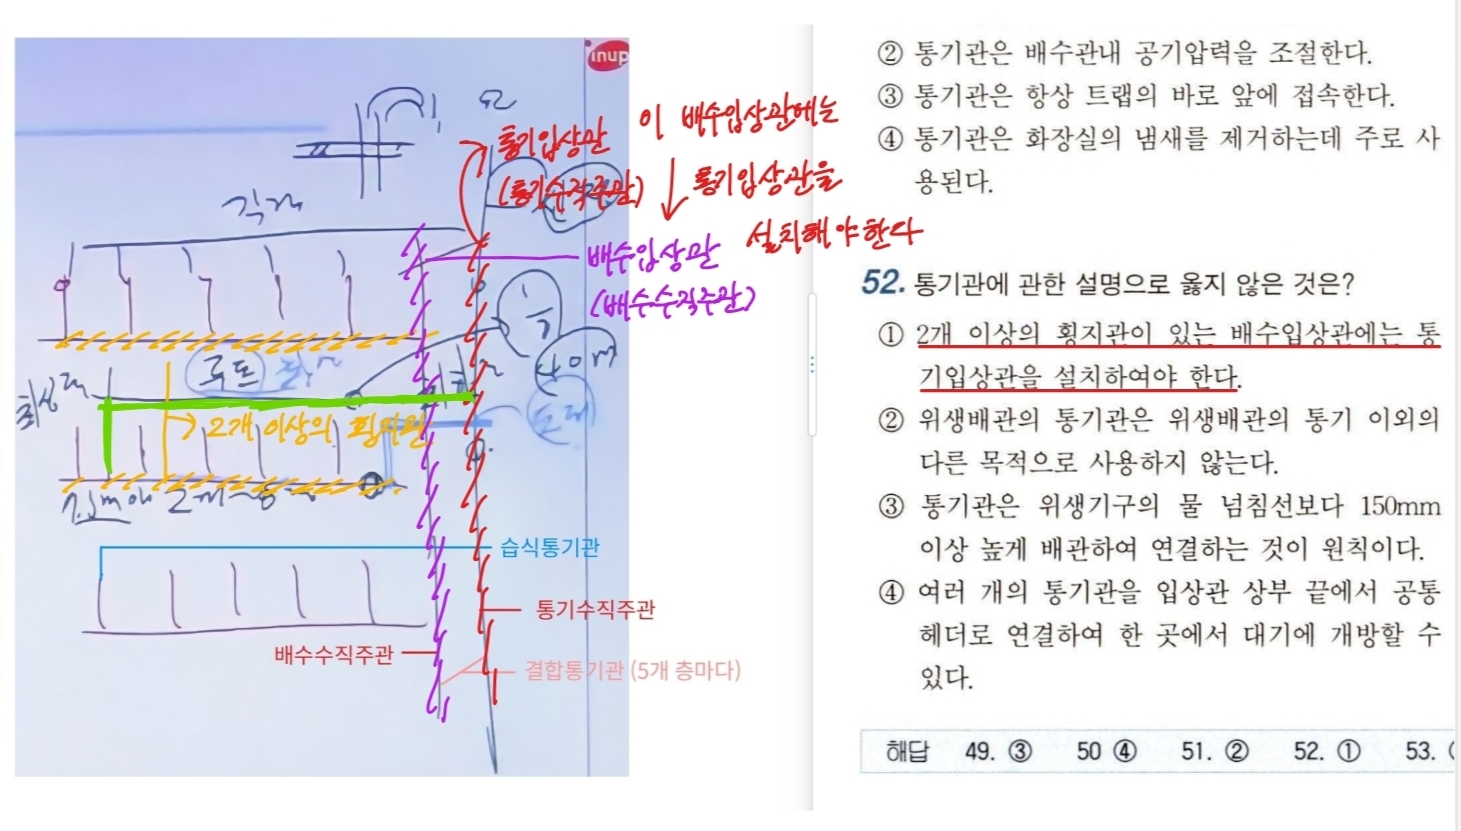 inup
통기입상관
(통기수직주관)
이 배수입상관에는
통기입상관을
설치해야한다
각개
배수입상관
(배수수직주관)
루프
40m
도피
최상류
2개 이상의 횡지관
습식통기관
통기수직주관
배수수직주관
결합통기관 (5개 층마다)
② 통기관은 배수관내 공기압력을 조절한다.
③ 통기관은 항상 트랩의 바로 앞에 접속한다.
④ 통기관은 화장실의 냄새를 제거하는데 주로 사
용된다.
52. 통기관에 관한 설명으로 옳지 않은 것은?
① 2개 이상의 횡지관이 있는 배수입상관에는 통
기입상관을 설치하여야 한다.
② 위생배관의 통기관은 위생배관의 통기 이외의
다른 목적으로 사용하지 않는다.
③ 통기관은 위생기구의 물 넘침선보다 150mm
이상 높게 배관하여 연결하는 것이 원칙이다.
④ 여러 개의 통기관을 입상관 상부 끝에서 공통
헤더로 연결하여 한 곳에서 대기에 개방할 수
있다.
해답 49. ③ 50 ④ 51. ② 52. ① 53.